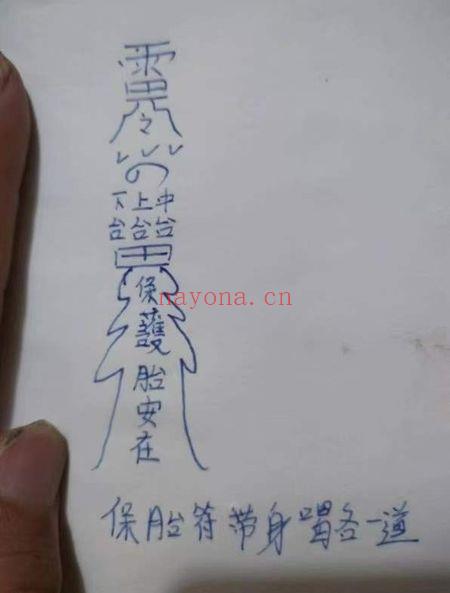 雷
令
下上中
台台台
保
護
胎
安
在
nayona.cn
保胎符带身喝各一道